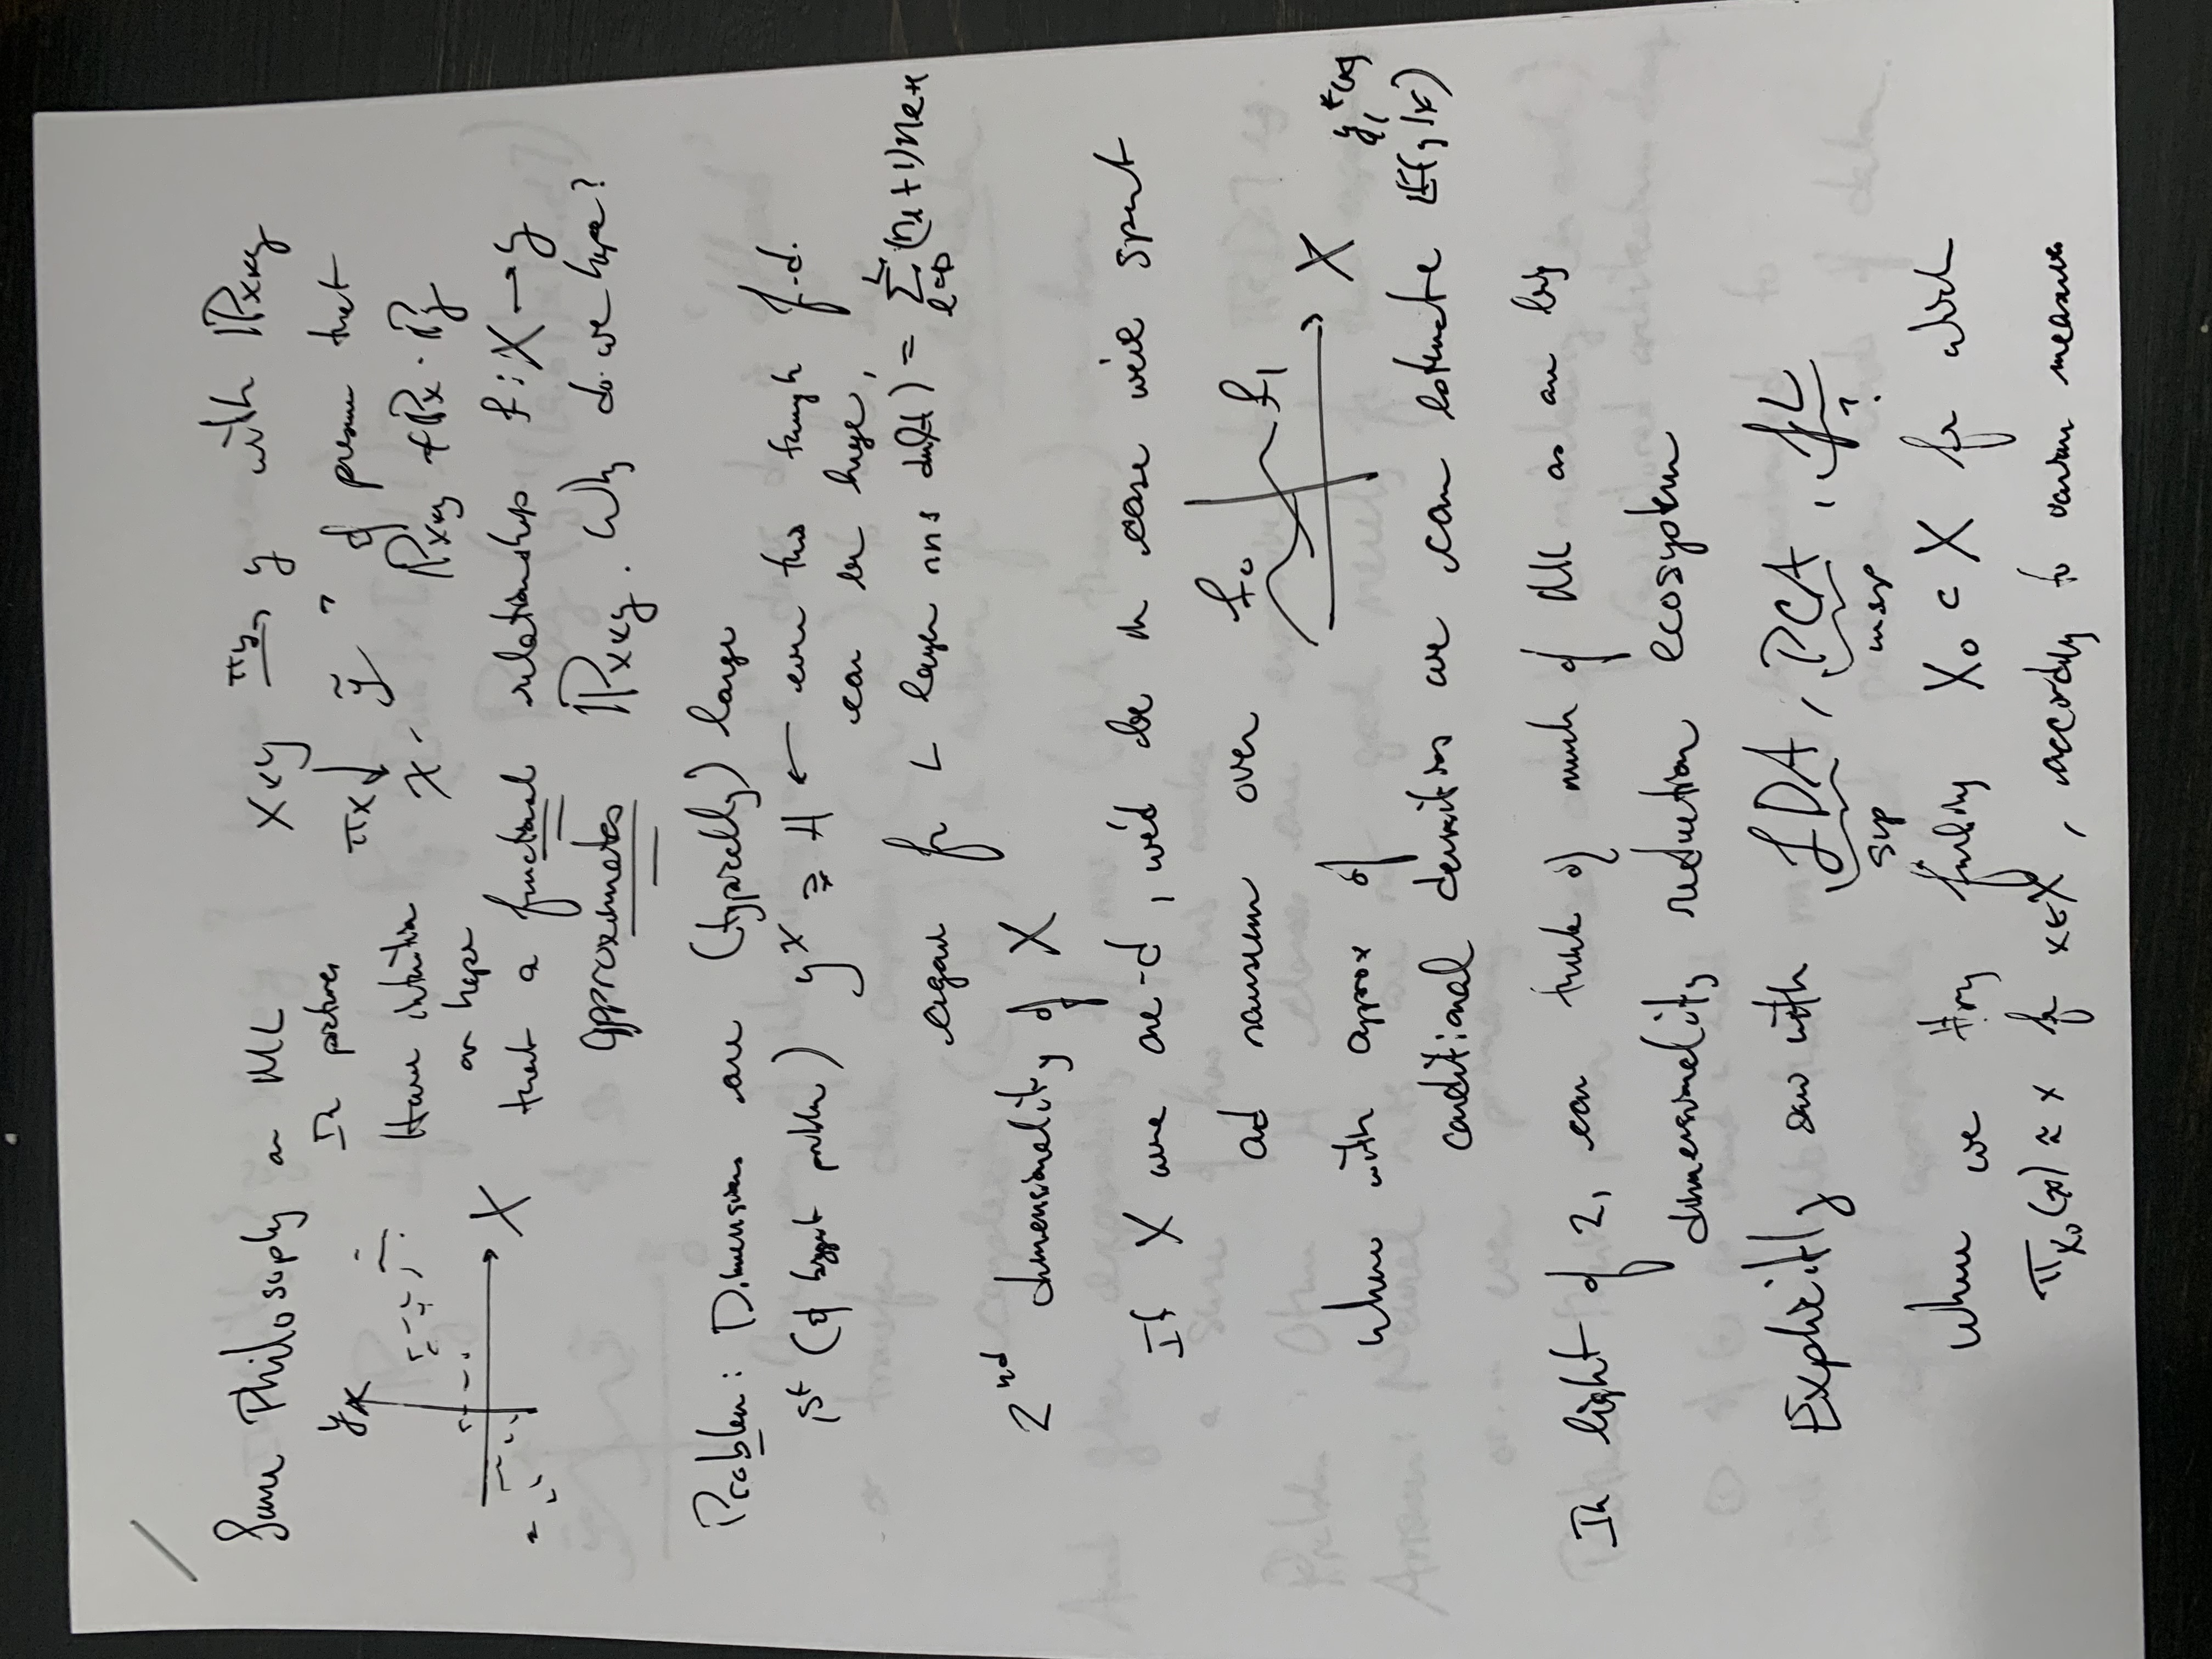 Some Philosophy on ML X×Y π_Y→ Y with ℙ_X×Y
Y
In pictures
π_X ↓ ỹ ? & presume that
Have intuition
X ℙ_X×Y ≠ ℙ_X · ℙ_Y
or hope
X
that a functional relationship f: X → Y
approximates ℙ_X×Y. Why do we hope?
Problem: Dimensions are (typically) large
1st (& biggest problem) Y^X ⊋ H ← even this though f.d.
can be huge,
again for L layer nns dim(H) = Σ_{l=0}^{L} (n_l + 1) n_{l+1}
2nd dimensionality of X
If X were one-d, we'd be in case we've spent
ad nauseum over f₀ f₁
X
where with approx of
conditional densities we can estimate E(y|x)
In light of 2, can think of much of ML as an big
dimensionality reduction ecosystem
Explicitly saw with LDA, PCA, JL
sup unsup ?
where we try finding X₀ ⊂ X for which
π_X₀(x) ≈ x for x∈X, according to various measures